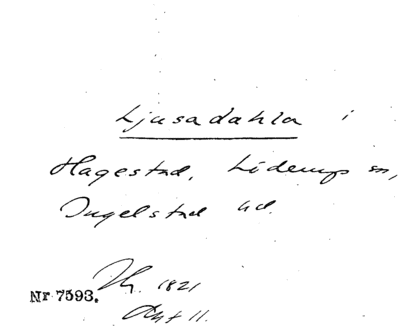 Ljusadahla i
Hagestad, Löderups sn,
Ingelstad hd.
Nr 7593.
1821
Akt 11.